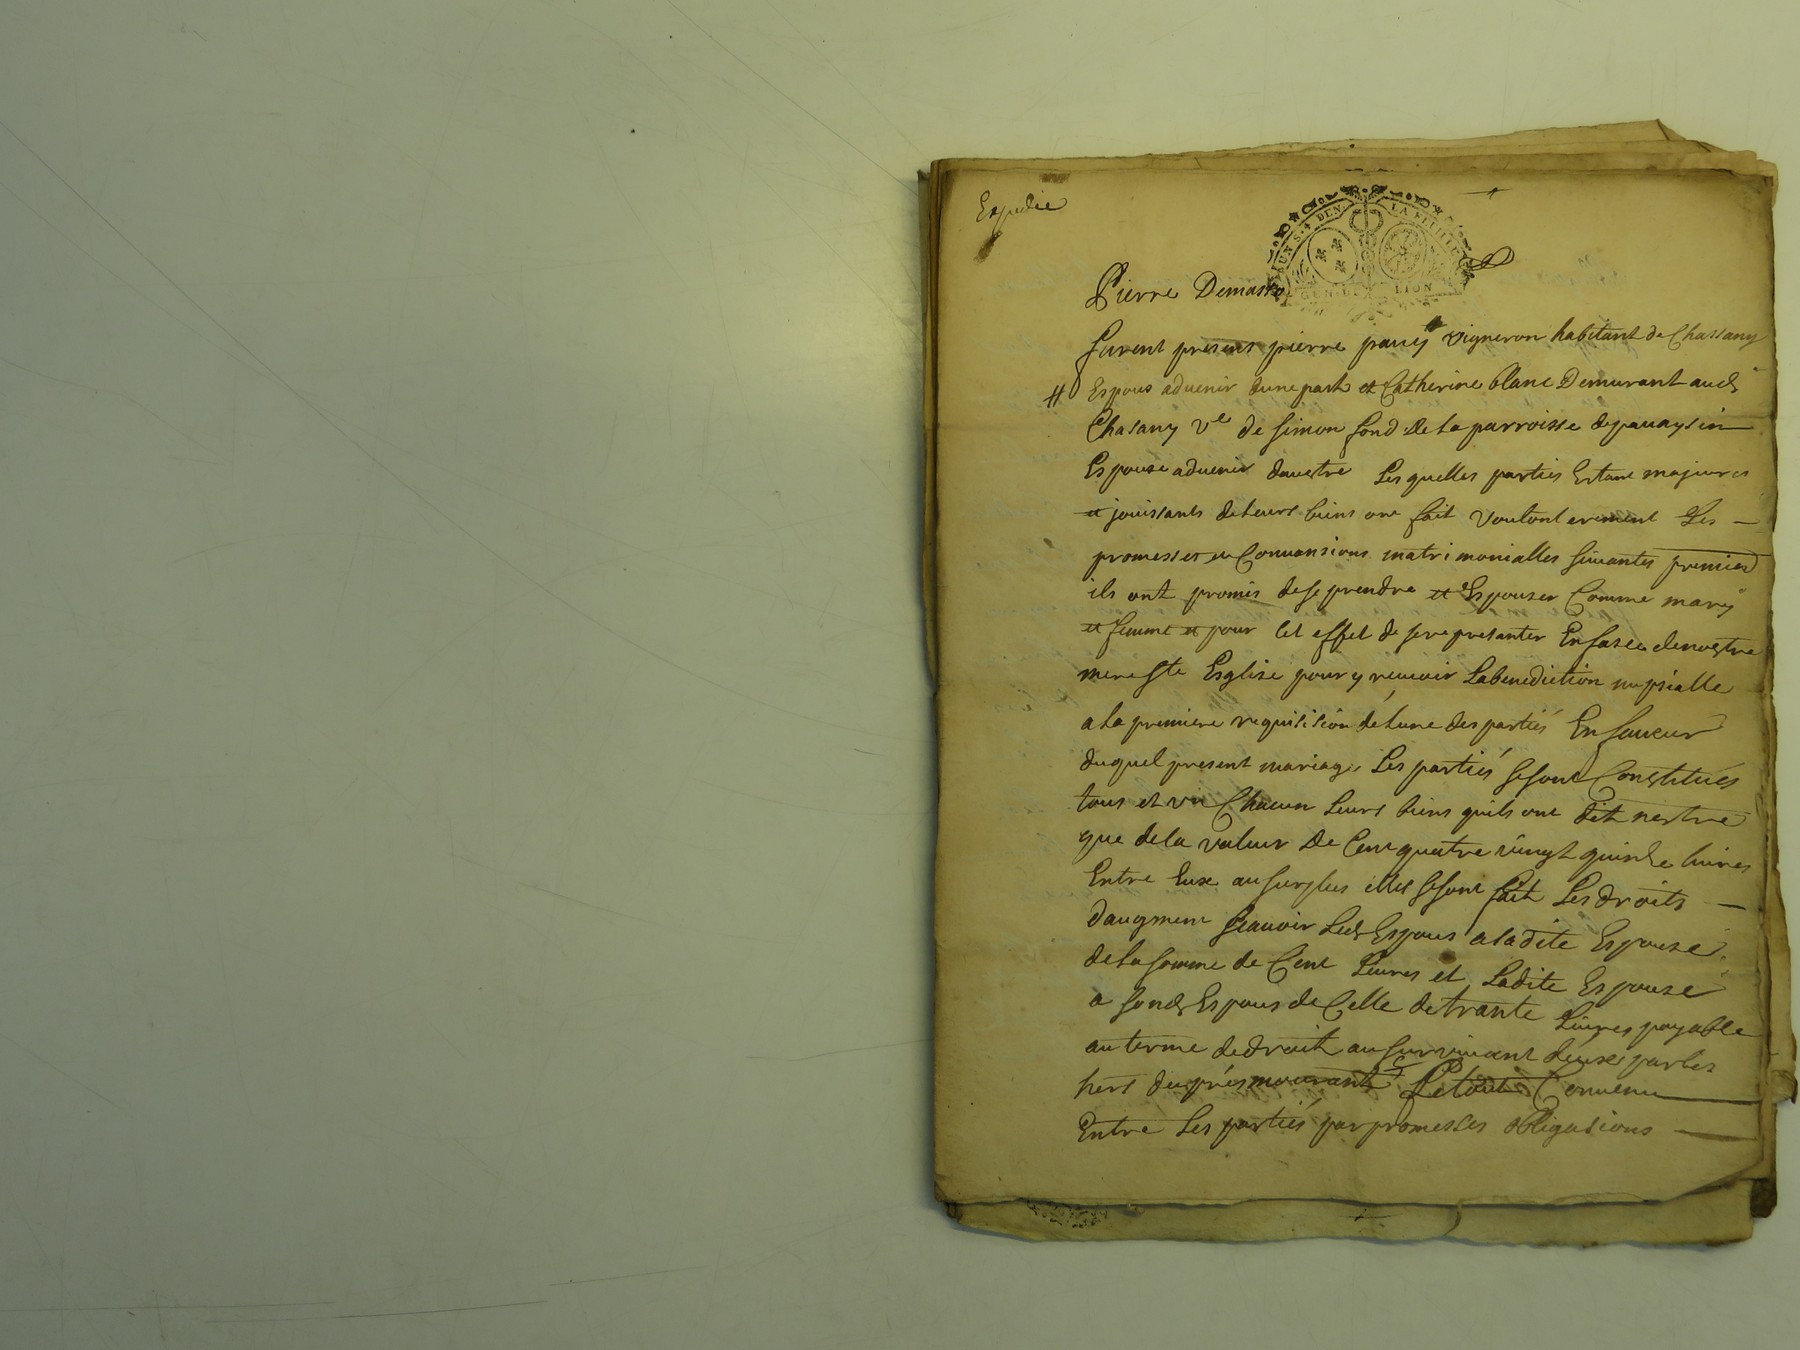 Expedie
UN S. 4 DEN. LA FEUILLE
GEN. LION
Pierre Demasso
furent presens pierre pauy vigneron habitant de Chassany
# Espous aduenir dune part et Catherine blanc Demurant aud
Chasany ve de simon fond de la parroisse de pauaysin
Espouse aduenir dauctre Lesquelles parties Estant majeures
et jouissants de leurs biens ont fait Voulonterement Les
promesses et Conuansions matrimonialles suiuantes premier
ils ont promis de se prendre et Espouser Comme mary
et femme et pour Cet effet de se represanter En face de nostre
mere Ste Esglise pour y receuoir La benediction nupsialle
a la premiere requisision de Lune des partiés En faueur
duquel present mariage Les partiés se sont Constitués
tous et vn Chacun Leurs biens quils ont dit nestre
que de la valeur De Cent quatre vingt quinze liures
Entre Eux au surplus elles se sont fait Les droits
daugment scauoir Led Espous a ladite Espouse
de la somme de Cent Liures et Ladite Espouse
a sond Espous de Celle de trante Liures payable
au terme de droit au suruiuant deux par les
hers du prémourant Le tout Conuenu
Entre Les partiés par promesses obligasions